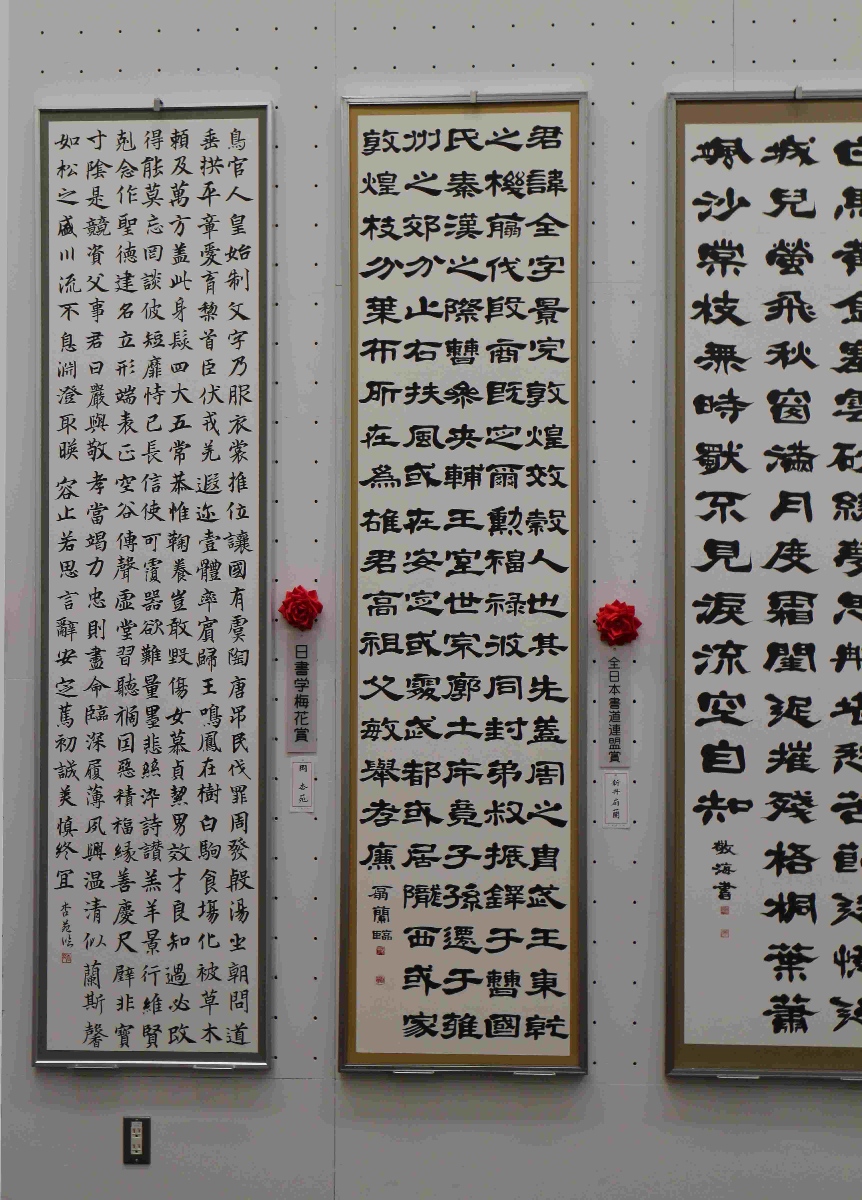 白馬黃金塞雲砂繞夢思那堪愁苦節遠憶邊
城兒螢飛秋窗滿月度霜閨遲摧殘梧桐葉蕭
颯沙棠枝無時獨不見淚流空自知
敬海書
全日本書道連盟賞
新井翁蘭
君諱全字景完敦煌效穀人也其先蓋周之冑武王秉乾
之機翦伐殷商既定爾勳福祿攸同封弟叔振鐸于曹國
氏秦漢之際曹參夾輔王室世宗廓土斥竟子孫遷于雍
州之郊分止右扶風或在安定或處武都或居隴西或家
敦煌枝分葉布所在為雄君高祖父敏舉孝廉
翁蘭臨
日書学梅花賞
周 杏苑
鳥官人皇始制文字乃服衣裳推位讓國有虞陶唐弔民伐罪周發殷湯坐朝問道
垂拱平章愛育黎首臣伏戎羌遐迩壹體率賓歸王鳴鳳在樹白駒食場化被草木
賴及萬方蓋此身髮四大五常恭惟鞠養豈敢毀傷女慕貞絜男效才良知過必改
得能莫忘罔談彼短靡恃己長信使可覆器欲難量墨悲絲染詩讚羔羊景行維賢
剋念作聖德建名立形端表正空谷傳聲虛堂習聽禍因惡積福緣善慶尺璧非寶
寸陰是競資父事君曰嚴與敬孝當竭力忠則盡命臨深履薄夙興温清似蘭斯馨
如松之盛川流不息淵澄取暎容止若思言辭安定篤初誠美慎終宜
杏苑臨